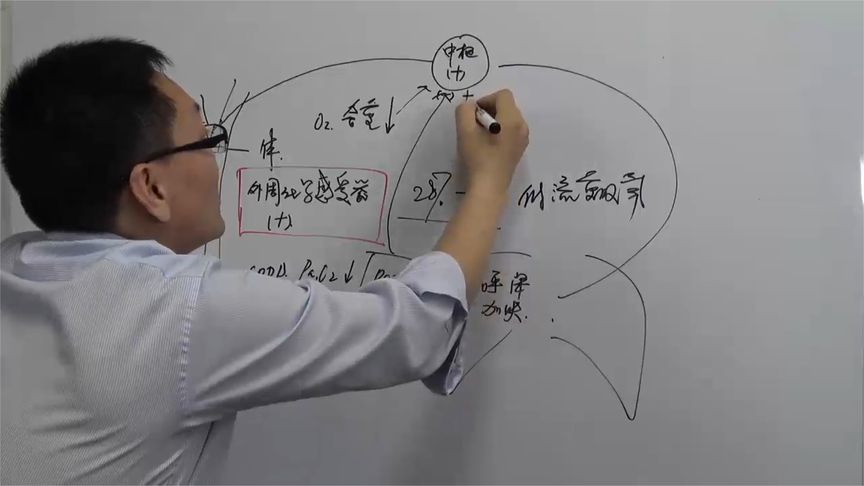 中枢
(+)
O₂ 含量↓
体.
外周化学感受器
(+)
28%
低流量吸氧
PaO₂↓
呼吸
加快.